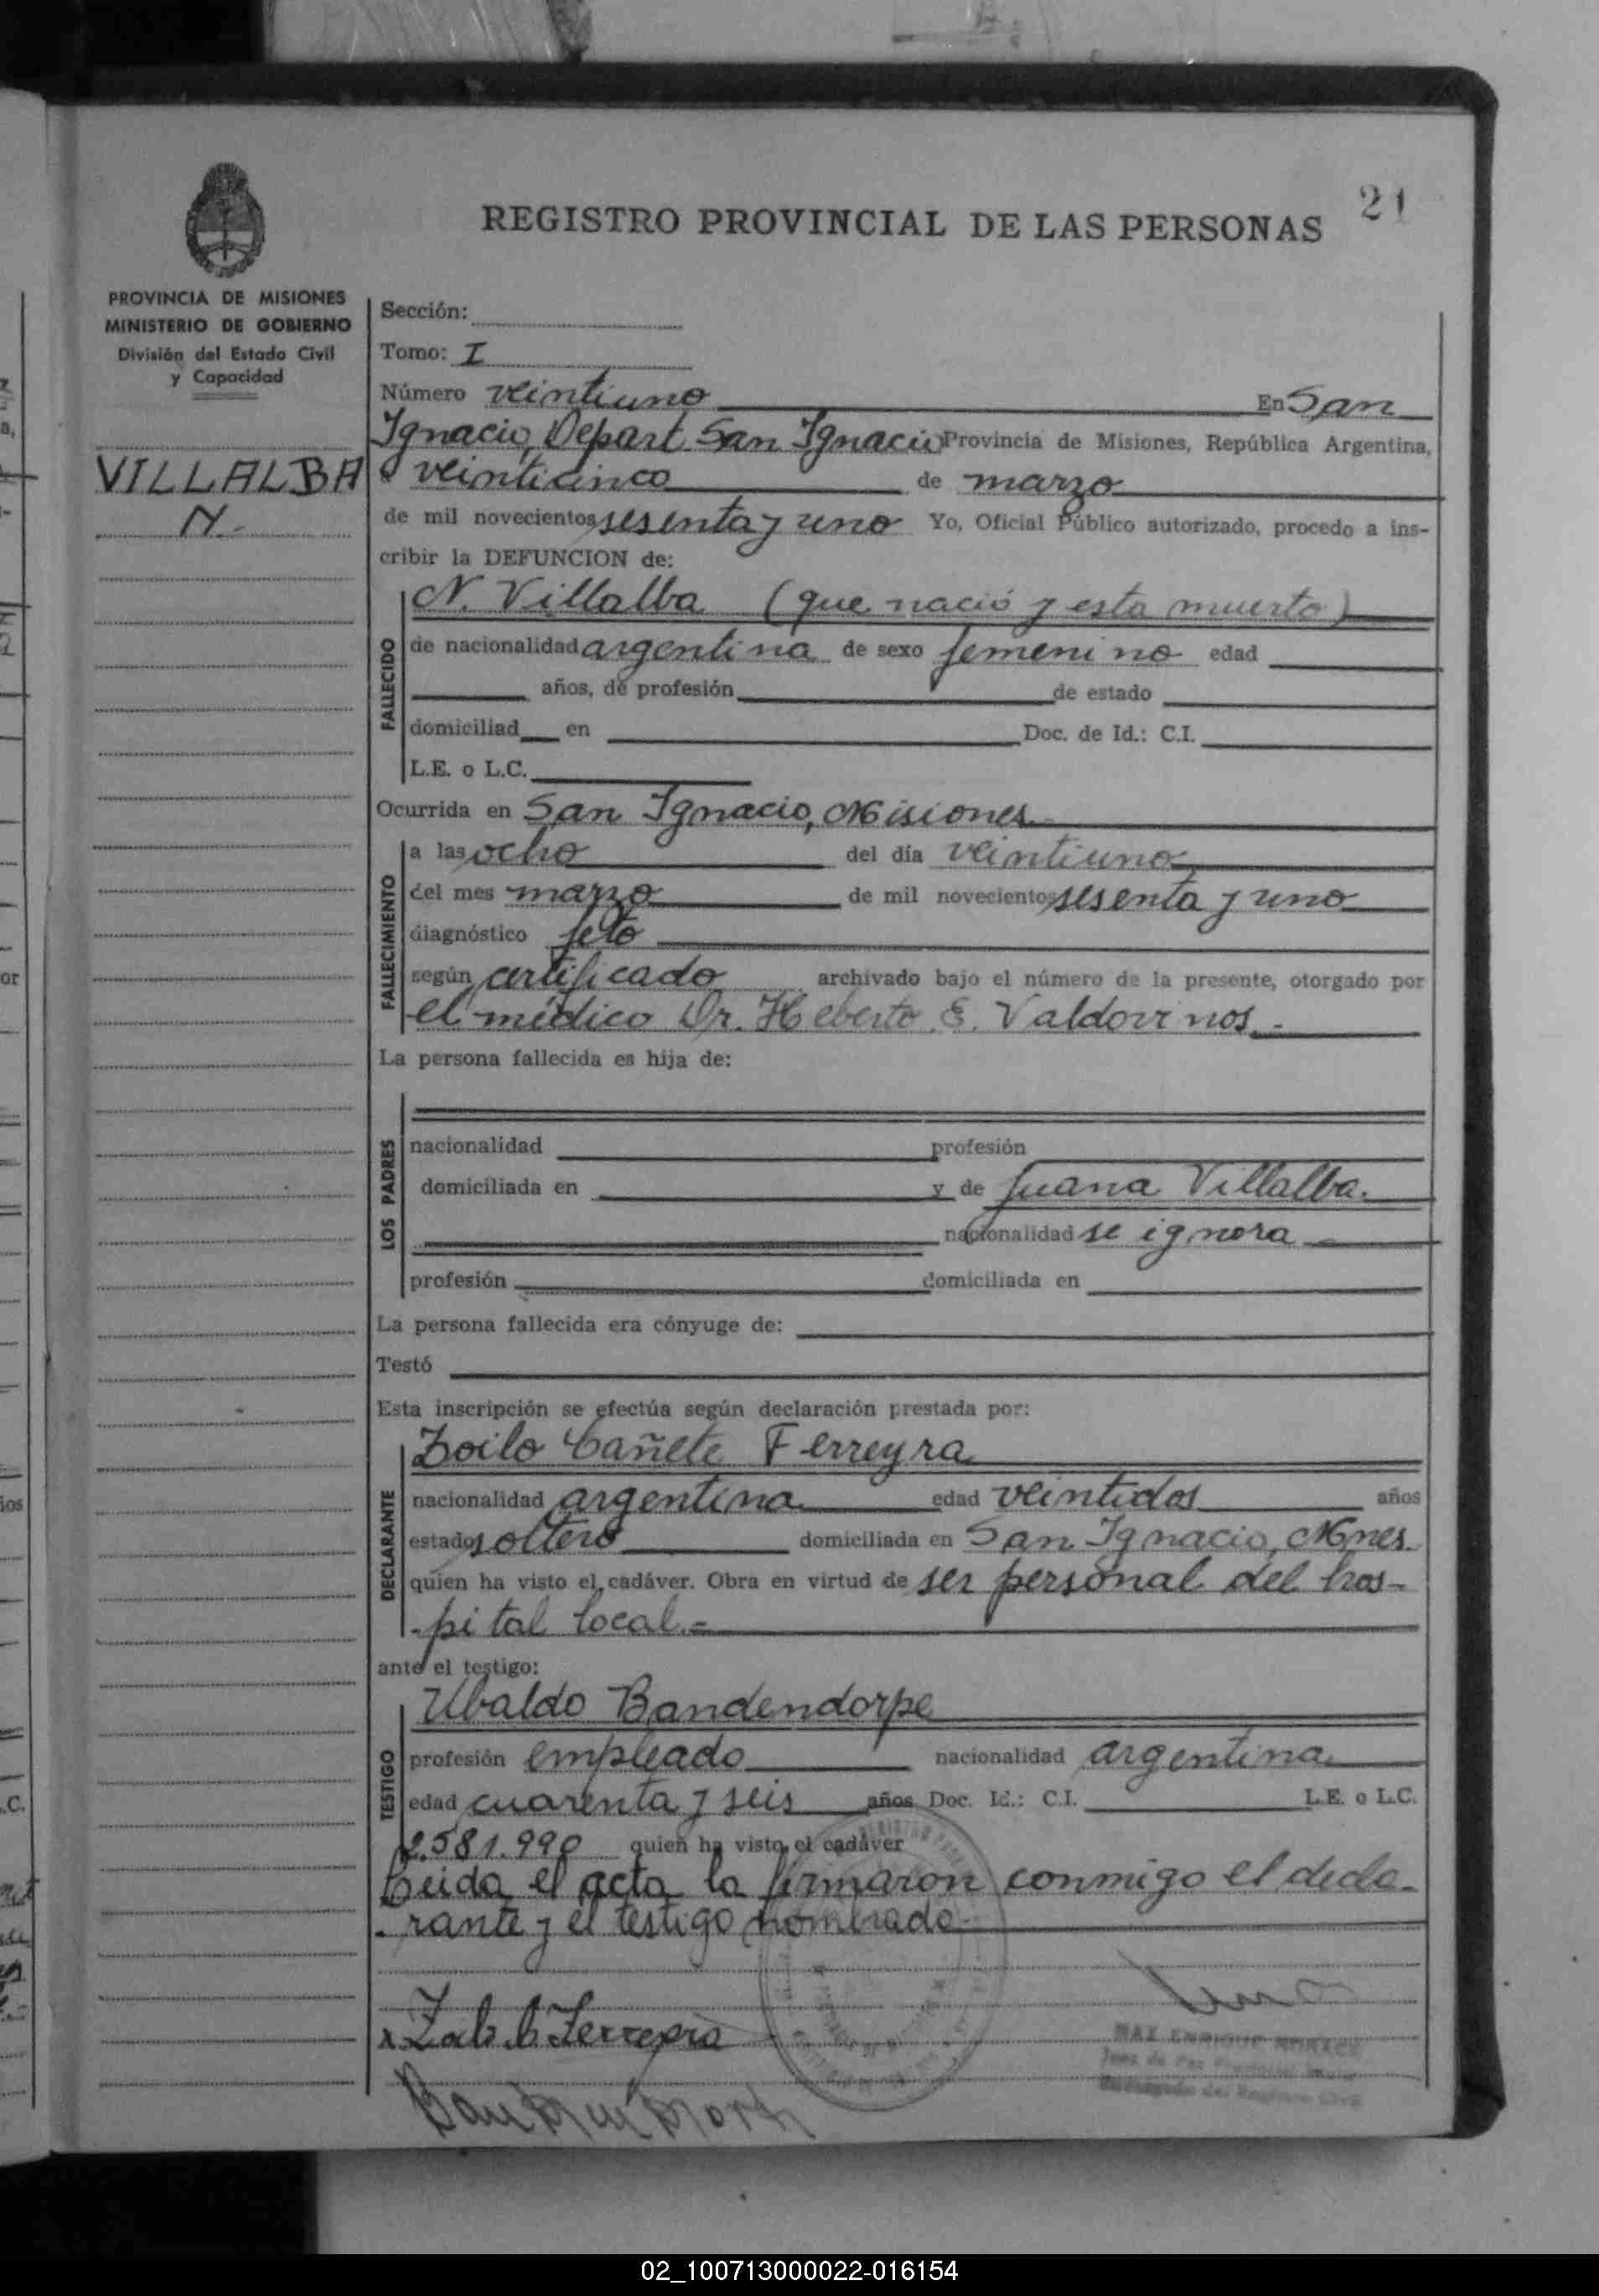 21
REGISTRO PROVINCIAL DE LAS PERSONAS
PROVINCIA DE MISIONES
MINISTERIO DE GOBIERNO
División del Estado Civil
y Capacidad
VILLALBA
N.-
Sección:
Tomo: I
Número veintiuno En San
Ignacio, Depart. San Ignacio Provincia de Misiones, República Argentina,
a veinticinco de marzo
de mil novecientos sesenta y uno Yo, Oficial Público autorizado, procedo a ins-
cribir la DEFUNCION de:
FALLECIDO
N. Villalba (que nació y esta muerto)
de nacionalidad argentina de sexo femenino edad
años, de profesión de estado
domiciliad en Doc. de Id.: C.I.
L.E. o L.C.
Ocurrida en San Ignacio, Misiones
FALLECIMIENTO
a las ocho del día veintiuno
del mes marzo de mil novecientos sesenta y uno
diagnóstico feto
según certificado archivado bajo el número de la presente, otorgado por
el médico Dr. Heberto E. Valdovinos.-
La persona fallecida es hija de:
LOS PADRES
nacionalidad profesión
domiciliada en y de Juana Villalba.
nacionalidad se ignora
profesión domiciliada en
La persona fallecida era cónyuge de:
Testó
Esta inscripción se efectúa según declaración prestada por:
DECLARANTE
Zoilo Cañete Ferreyra
nacionalidad argentina edad veintidos años
estado soltero domiciliada en San Ignacio, Mnes.
quien ha visto el cadáver. Obra en virtud de ser personal del hos-
-pital local.-
ante el testigo:
TESTIGO
Ubaldo Bandendorpe
profesión empleado nacionalidad argentina
edad cuarenta y seis años Doc. Id.: C.I. L.E. o L.C.
2.581.990 quien ha visto el cadáver
Leida el acta la firmaron conmigo el decla-
-rante y el testigo nombrado-
MAX ENRIQUE
Juez de Paz
Encargado del Registro Civil
02_100713000022-016154